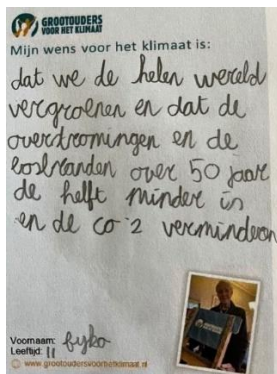 GROOTOUDERS
VOOR HET KLIMAAT
Mijn wens voor het klimaat is:
dat we de helen wereld
vergroenen en dat de
overstromingen en de
bosbranden over 50 jaar
de helft minder is
en de co2 verminderen
Voornaam: fyko
Leeftijd: 11
www.grootoudersvoorhetklimaat.nl